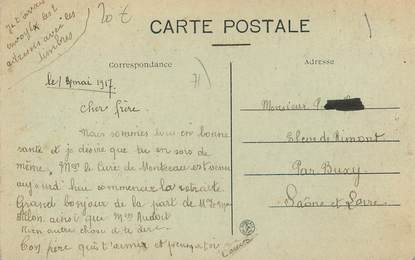 CARTE POSTALE
Correspondance
Adresse
le 1 mai 1917
cher frère.
Nous sommes tous en bonne
santé et je désire que tu en sois de
même, Mr le Curé de Montceau est venu
aujourd'hui commencer la retraite
Grand bonjour de la part de
ainsi que
Rien autre chose à te dire
Ton père qui t'aime et pense à toi
Monsieur
Elève de Rimont
Par Buxy
Saône et Loire
envoyer les 2
adresses avec les
timbres